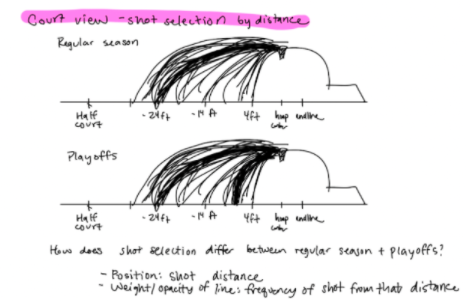 Court view - shot selection by distance
Regular season
Half court
~24ft
~14 ft
4ft
hoop
endline
Playoffs
Half court
~24ft
~14 ft
4ft
hoop
endline
How does shot selection differ between regular season + playoffs?
- Position: shot distance
- Weight/opacity of line: frequency of shot from that distance